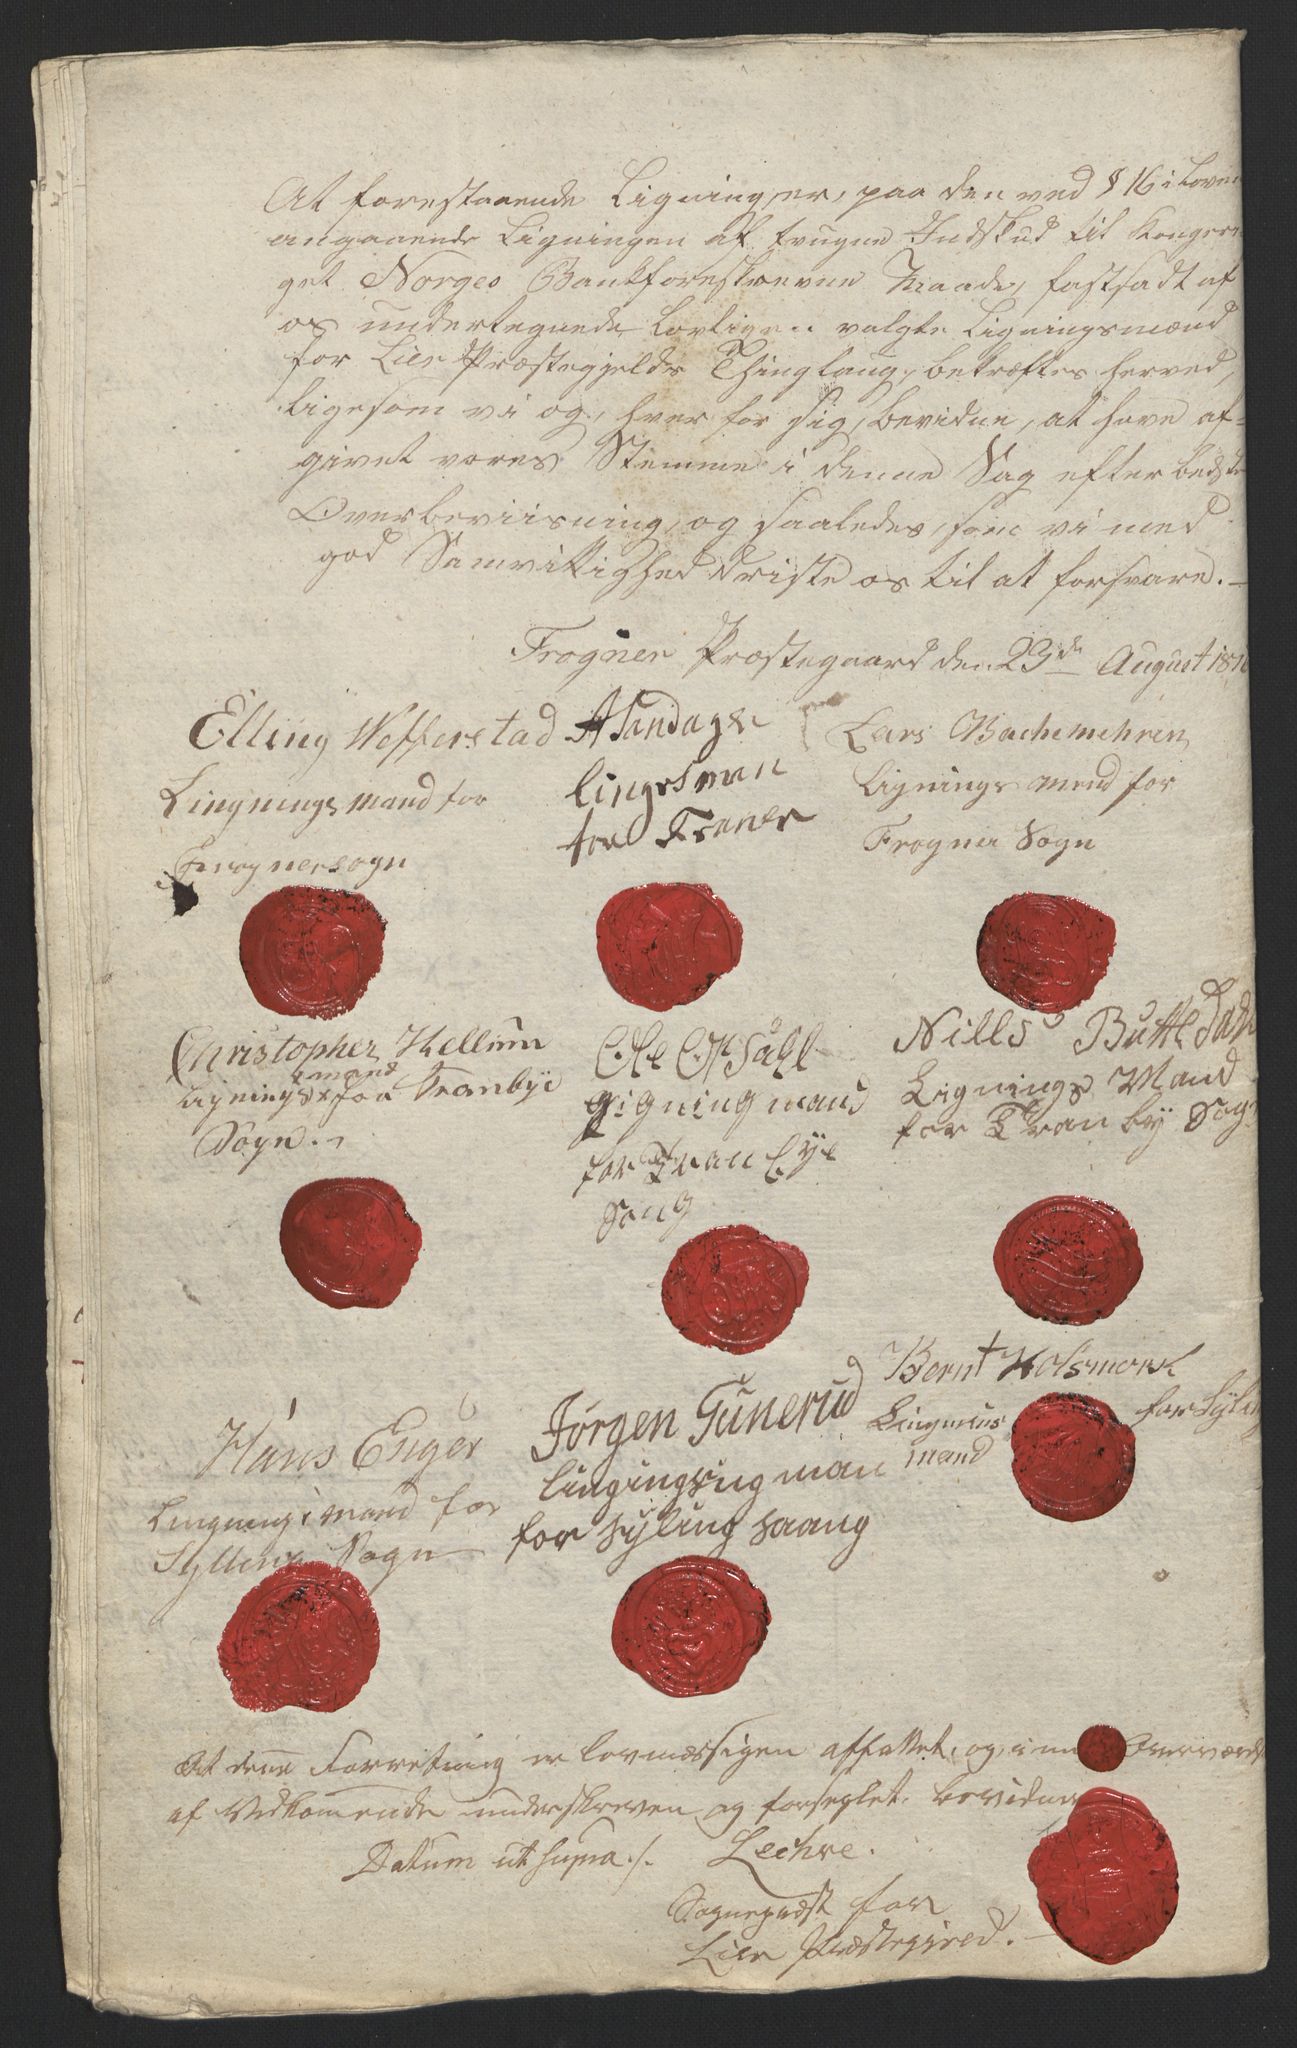 At forestaaende Ligning er, paa den ved § 16 i Loven
angaaende Ligningen af tvugne Indskud til Kongeri-
get Norges Bank foreskrevne Maade, fastsadt af
os undertegnede lovligen valgte Ligningsmænd
for Lier Præstegjelds Thinglaug, bekræftes herved,
ligesom vi og, hver for sig, bevidne, at have af-
givet vores Stemme i denne Sag efter bedste
Overbeviisning, og saaledes, som vi med
god Samvittighed driste os til at forsvare.
Frogner Præstegaard den 23de August 1816
Elling Wefferstad
Lingnings mand for
Frognersogn
A Landager
lings man
for Franer
Lars Bachemehren
Lignings mend for
Frogner Sogn
Christopher Hellum
Lignings mand for Tranbye
Sogn.
Ole Opsahl
gigning mand
for Tranbye
Song
Nills Buttedahl
Lignings Mand
for Tranby Sogn
Hans Enger
Lingnings mand for
Sylling Sogn
Jørgen Gunerud
lingingsing man
for Syling saang
Bernt Holsmork
Lingnins
mand
for Syling
At denne Forretning er lovmæssigen affattet, og, i
af Vedkommende underskreven og forseglet, bevidner
Datum ut supra ./. Lechve.
Sognepræst for
Lier Præstegield.